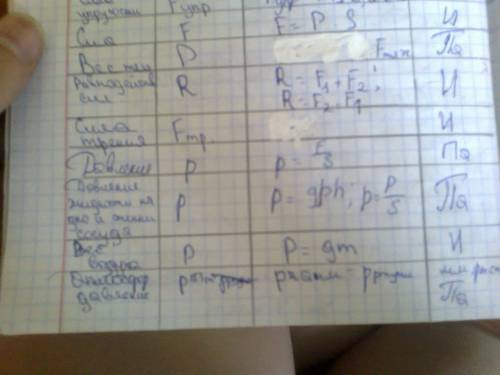 упругости Fупр
Сила F F = P S И
Вес тела P Fтяж Па
Равнодейств сил R R = F1 + F2; И
R = F2 - F1
Сила трения Fтр. И
Давление p p = F/S Па
Давление жидкости на дно и стенки сосуда p p = gρh; p = P/S Па
Вес воздуха P P = gm И
давление мм рт.ст
Па